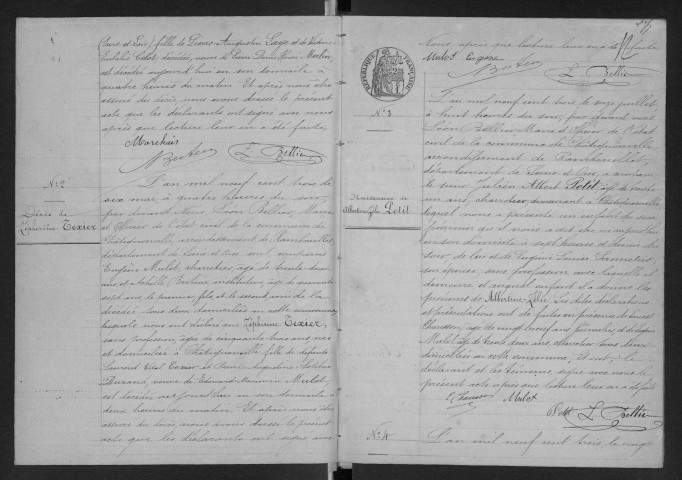 (Eure et Loir) fille de Pierre Augustin Sage et de Victoire
Eulalie Cabot, décédés, veuve de Pierre Denis Marin
est décédée aujourd'hui en son domicile à
quatre heures du matin. Et après nous être
assuré du décès, nous avons dressé le présent
acte que les déclarants ont signé avec nous
après que lecture leur en a été faite.
Marchais
L. Bellier
N° 2
Décès de
Zéphirine Texier
L'an mil neuf cent trois le
mai, à quatre heures du soir,
par devant nous Léon Bellier, Maire
et Officier de l'état civil de la commune de
arrondissement de Rambouillet,
département de Seine et Oise, sont comparus
Eugène Mulot, charretier, âgé de trente deux
ans et Achille Berteau instituteur, âgé de quarante
sept ans, le premier fils et le second ami de la
décédée tous deux domiciliés en cette commune
lesquels nous ont déclaré que Zéphirine Texier,
sans profession, âgée de cinquante huit ans née
et domiciliée à fille de défunts
Laurent Vital Texier et Marie Augustine
Durand, veuve de Edouard Mulot,
est décédée aujourd'hui en son domicile à
deux heures du matin. Et après nous être
assuré du décès, nous avons dressé le présent
acte que les déclarants ont signé avec
nous après que lecture leur en a été faite
Mulot Eugène
Berteau
L. Bellier
RÉPUBLIQUE FRANÇAISE
N° 3
Naissance de
Albertine Zélie Petit
L'an mil neuf cent trois le onze juillet,
à huit heures du soir, par devant nous
Léon Bellier, Maire et Officier de l'état
civil de la commune de
arrondissement de Rambouillet,
département de Seine et Oise, a comparu
le sieur Julien Albert Petit, âgé de trente
un ans, charretier, demeurant à
lequel nous a présenté un enfant du sexe
féminin qu'il nous a dit être né aujourd'hui
à sept heures du
soir, de lui et de Eugénie Louise
son épouse, sans profession avec laquelle il
demeure et auquel enfant il a donné les
prénoms de Albertine Zélie. Les dites déclarations
et présentations ont été faites en présence de
Chausson, âgé de vingt neuf ans et de Eugène
Mulot, âgé de trente deux ans, charretier tous deux
domiciliés en cette commune. Et ont, le
déclarant et les témoins, signé avec nous le
présent acte après que lecture leur en a été faite
Chausson Mulot
Petit L. Bellier
N° 4
L'an mil neuf cent trois, le vingt